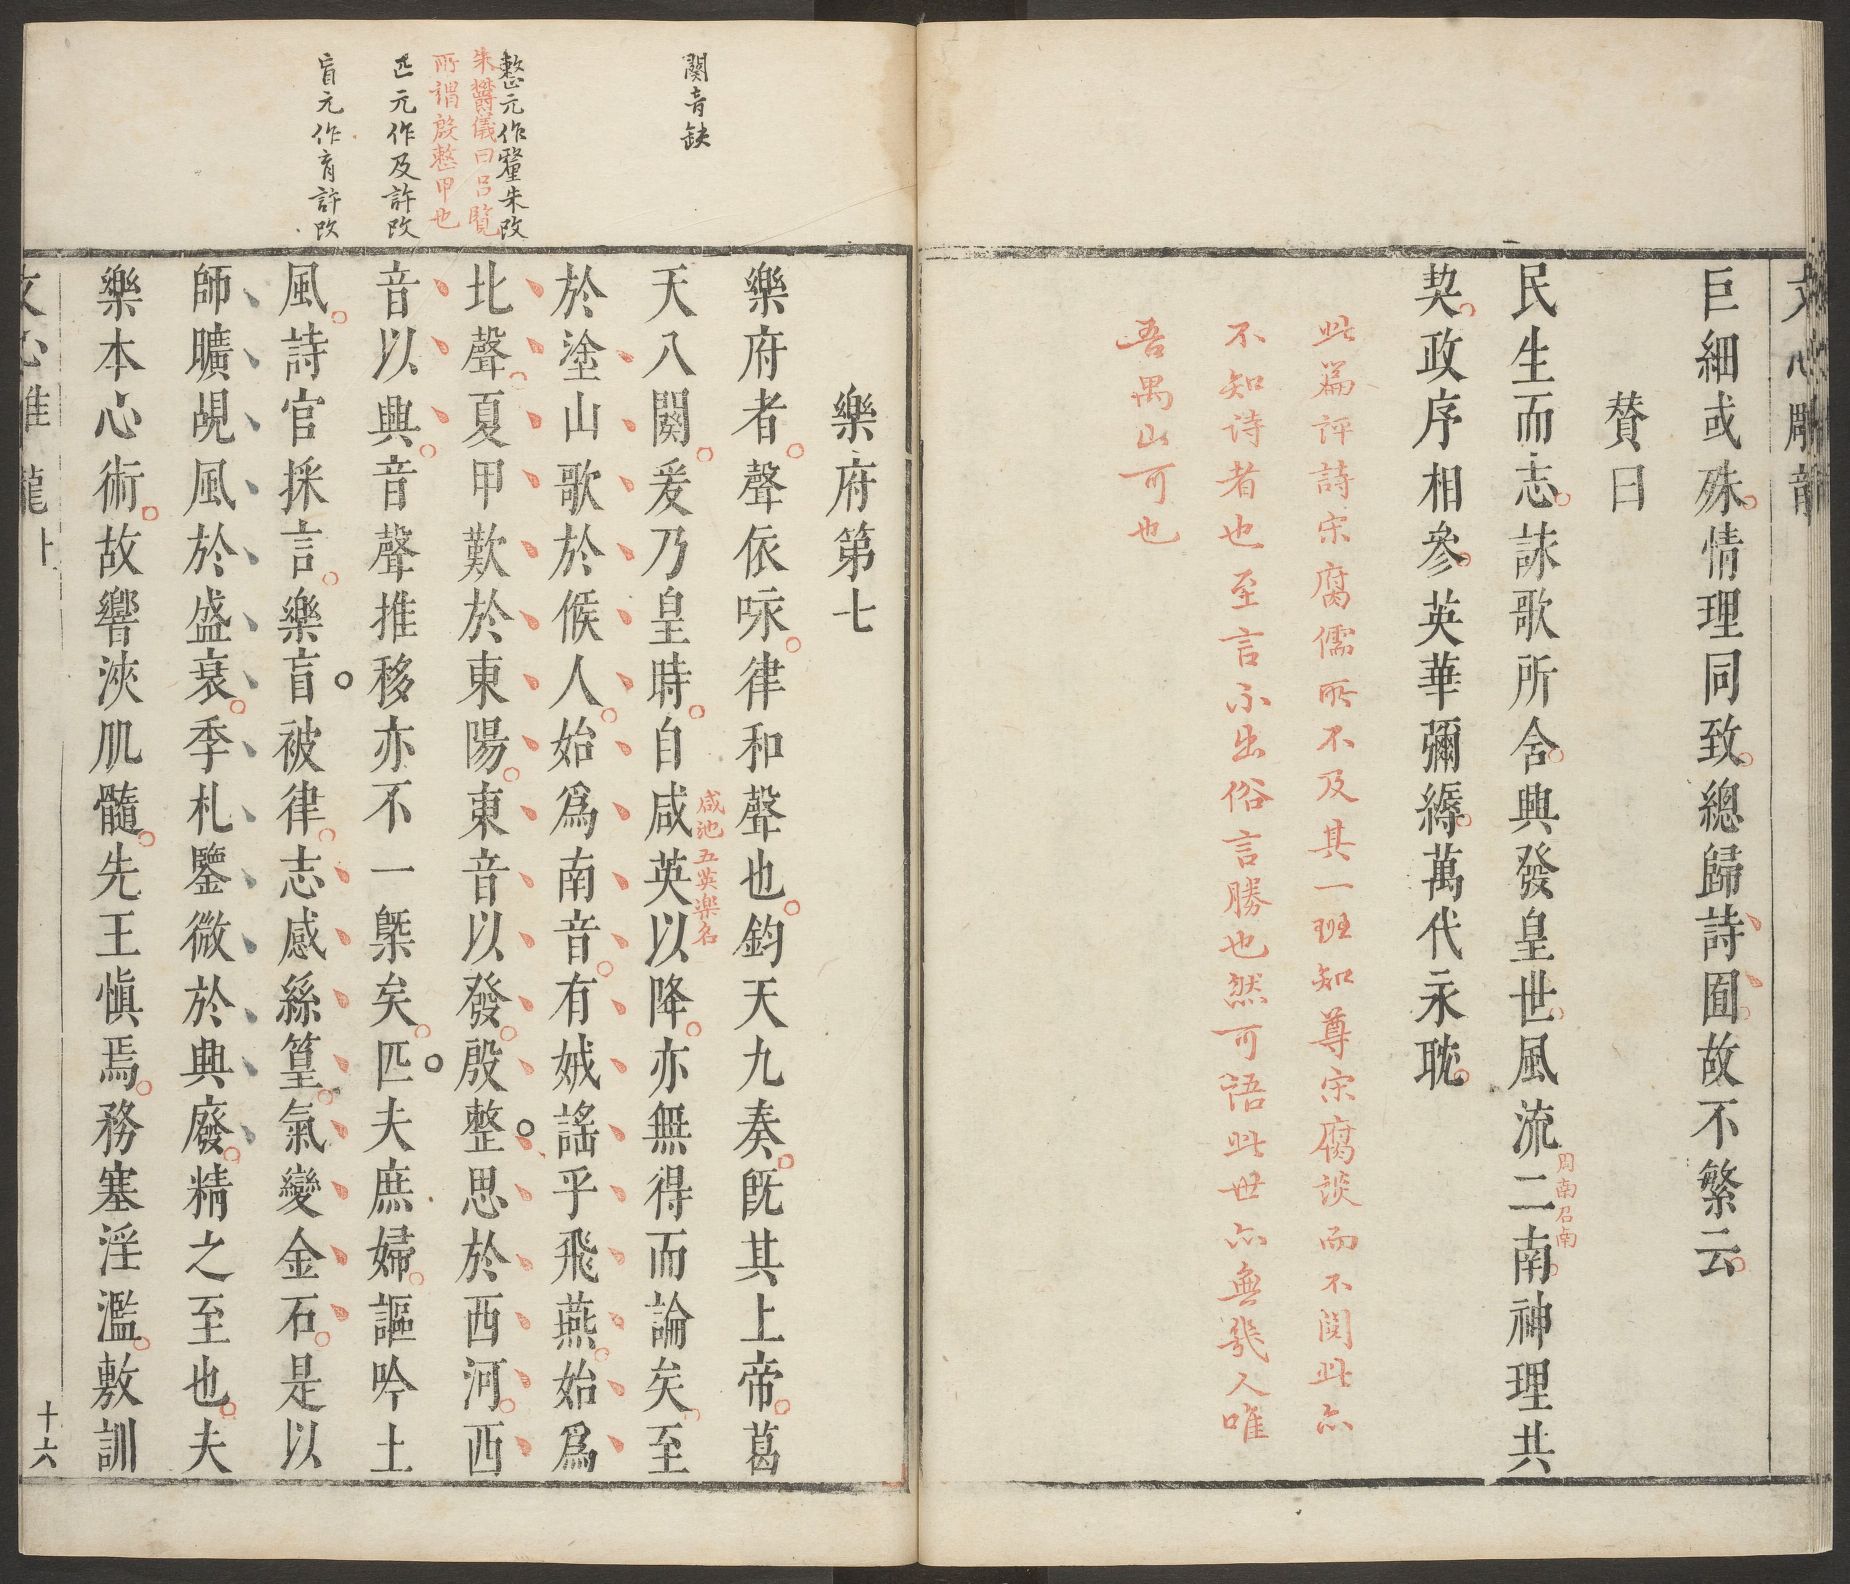 巨細或殊情理同致總歸詩囿故不繁云
贊曰
民生而志詠歌所含興發皇世風流二南神理共
周南召南
契政序相參英華彌縟萬代永耽
此篇評詩宋腐儒所不及其一班知尊宋腐談而不閱此亦
不知诗者也至言不出俗言勝也然可語此世亦無幾人唯
吾禺山可也
樂府第七
樂府者聲依咏律和聲也鈞天九奏旣其上帝葛
闋音缺
天八闋爰乃皇時自咸英以降亦無得而論矣至
咸池五英楽名
於塗山歌於候人始爲南音有娀謠乎飛燕始爲
整元作釐朱改
朱欝儀曰吕覧
所謂殷整甲也
北聲夏甲歎於東陽東音以發殷整思於西河西
匹元作及許改
音以興音聲推移亦不一槩矣匹夫庶婦謳吟土
盲元作育許改
風詩官採言樂盲被律志感絲篁氣變金石是以
師曠覘風於盛衰季札鑒微於興廢精之至也夫
樂本心術故響浹肌髓先王愼焉務塞淫濫敷訓
十六